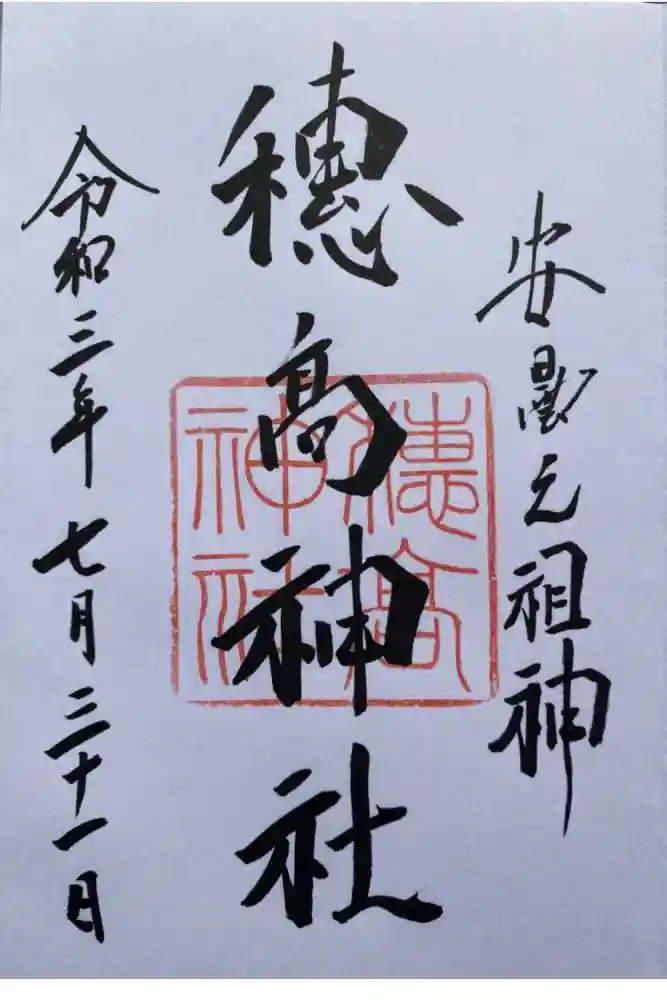 安曇元祖神
穂髙神社
穂髙神社
令和三年七月三十一日